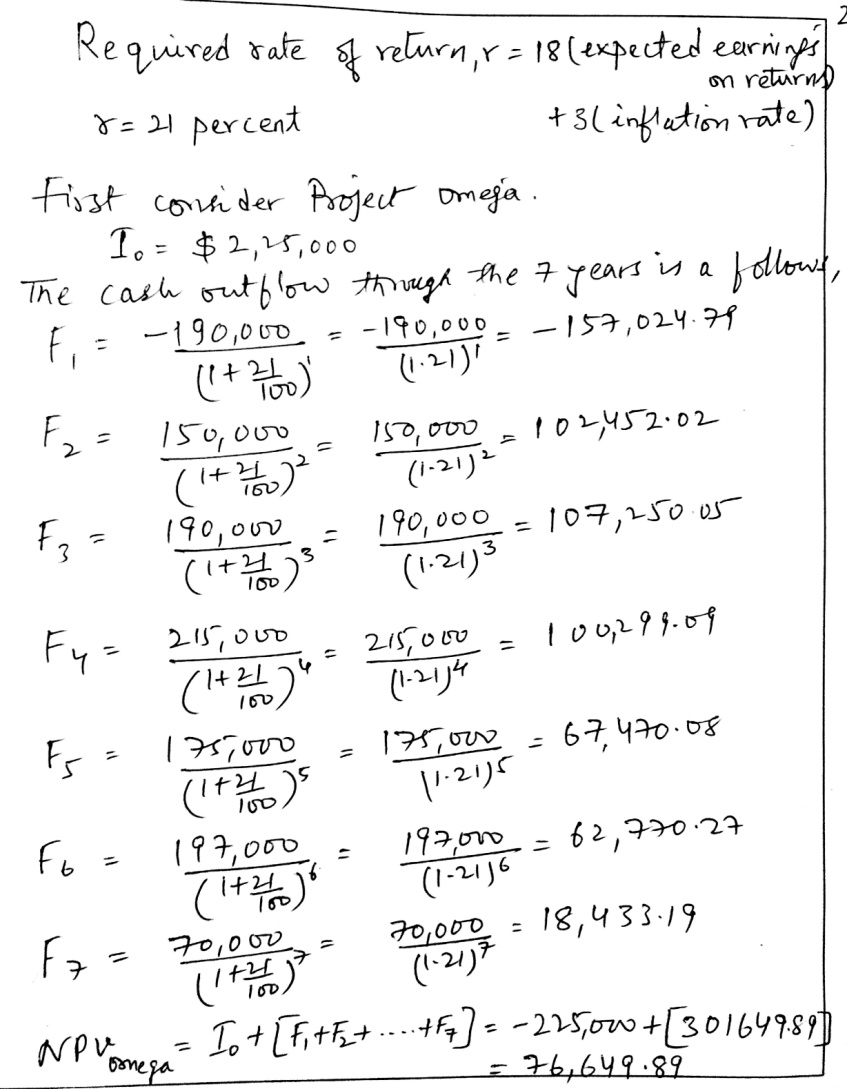 2
Required rate of return, r = 18 (expected earnings
on returns)
r = 21 percent + 3 (inflation rate)
First consider Project omega.
I₀ = $ 2,25,000
The cash outflow through the 7 years is a follows,
F₁ = -190,000 / (1 + 21/100)¹ = -190,000 / (1.21)¹ = -157,024.79
F₂ = 150,000 / (1 + 21/100)² = 150,000 / (1.21)² = 102,452.02
F₃ = 190,000 / (1 + 21/100)³ = 190,000 / (1.21)³ = 107,250.05
F₄ = 215,000 / (1 + 21/100)⁴ = 215,000 / (1.21)⁴ = 100,299.09
F₅ = 175,000 / (1 + 21/100)⁵ = 175,000 / (1.21)⁵ = 67,470.08
F₆ = 197,000 / (1 + 21/100)⁶ = 197,000 / (1.21)⁶ = 62,770.27
F₇ = 70,000 / (1 + 21/100)⁷ = 70,000 / (1.21)⁷ = 18,433.19
NPV omega = I₀ + [F₁ + F₂ + .... + F₇] = -225,000 + [301649.89]
= 76,649.89